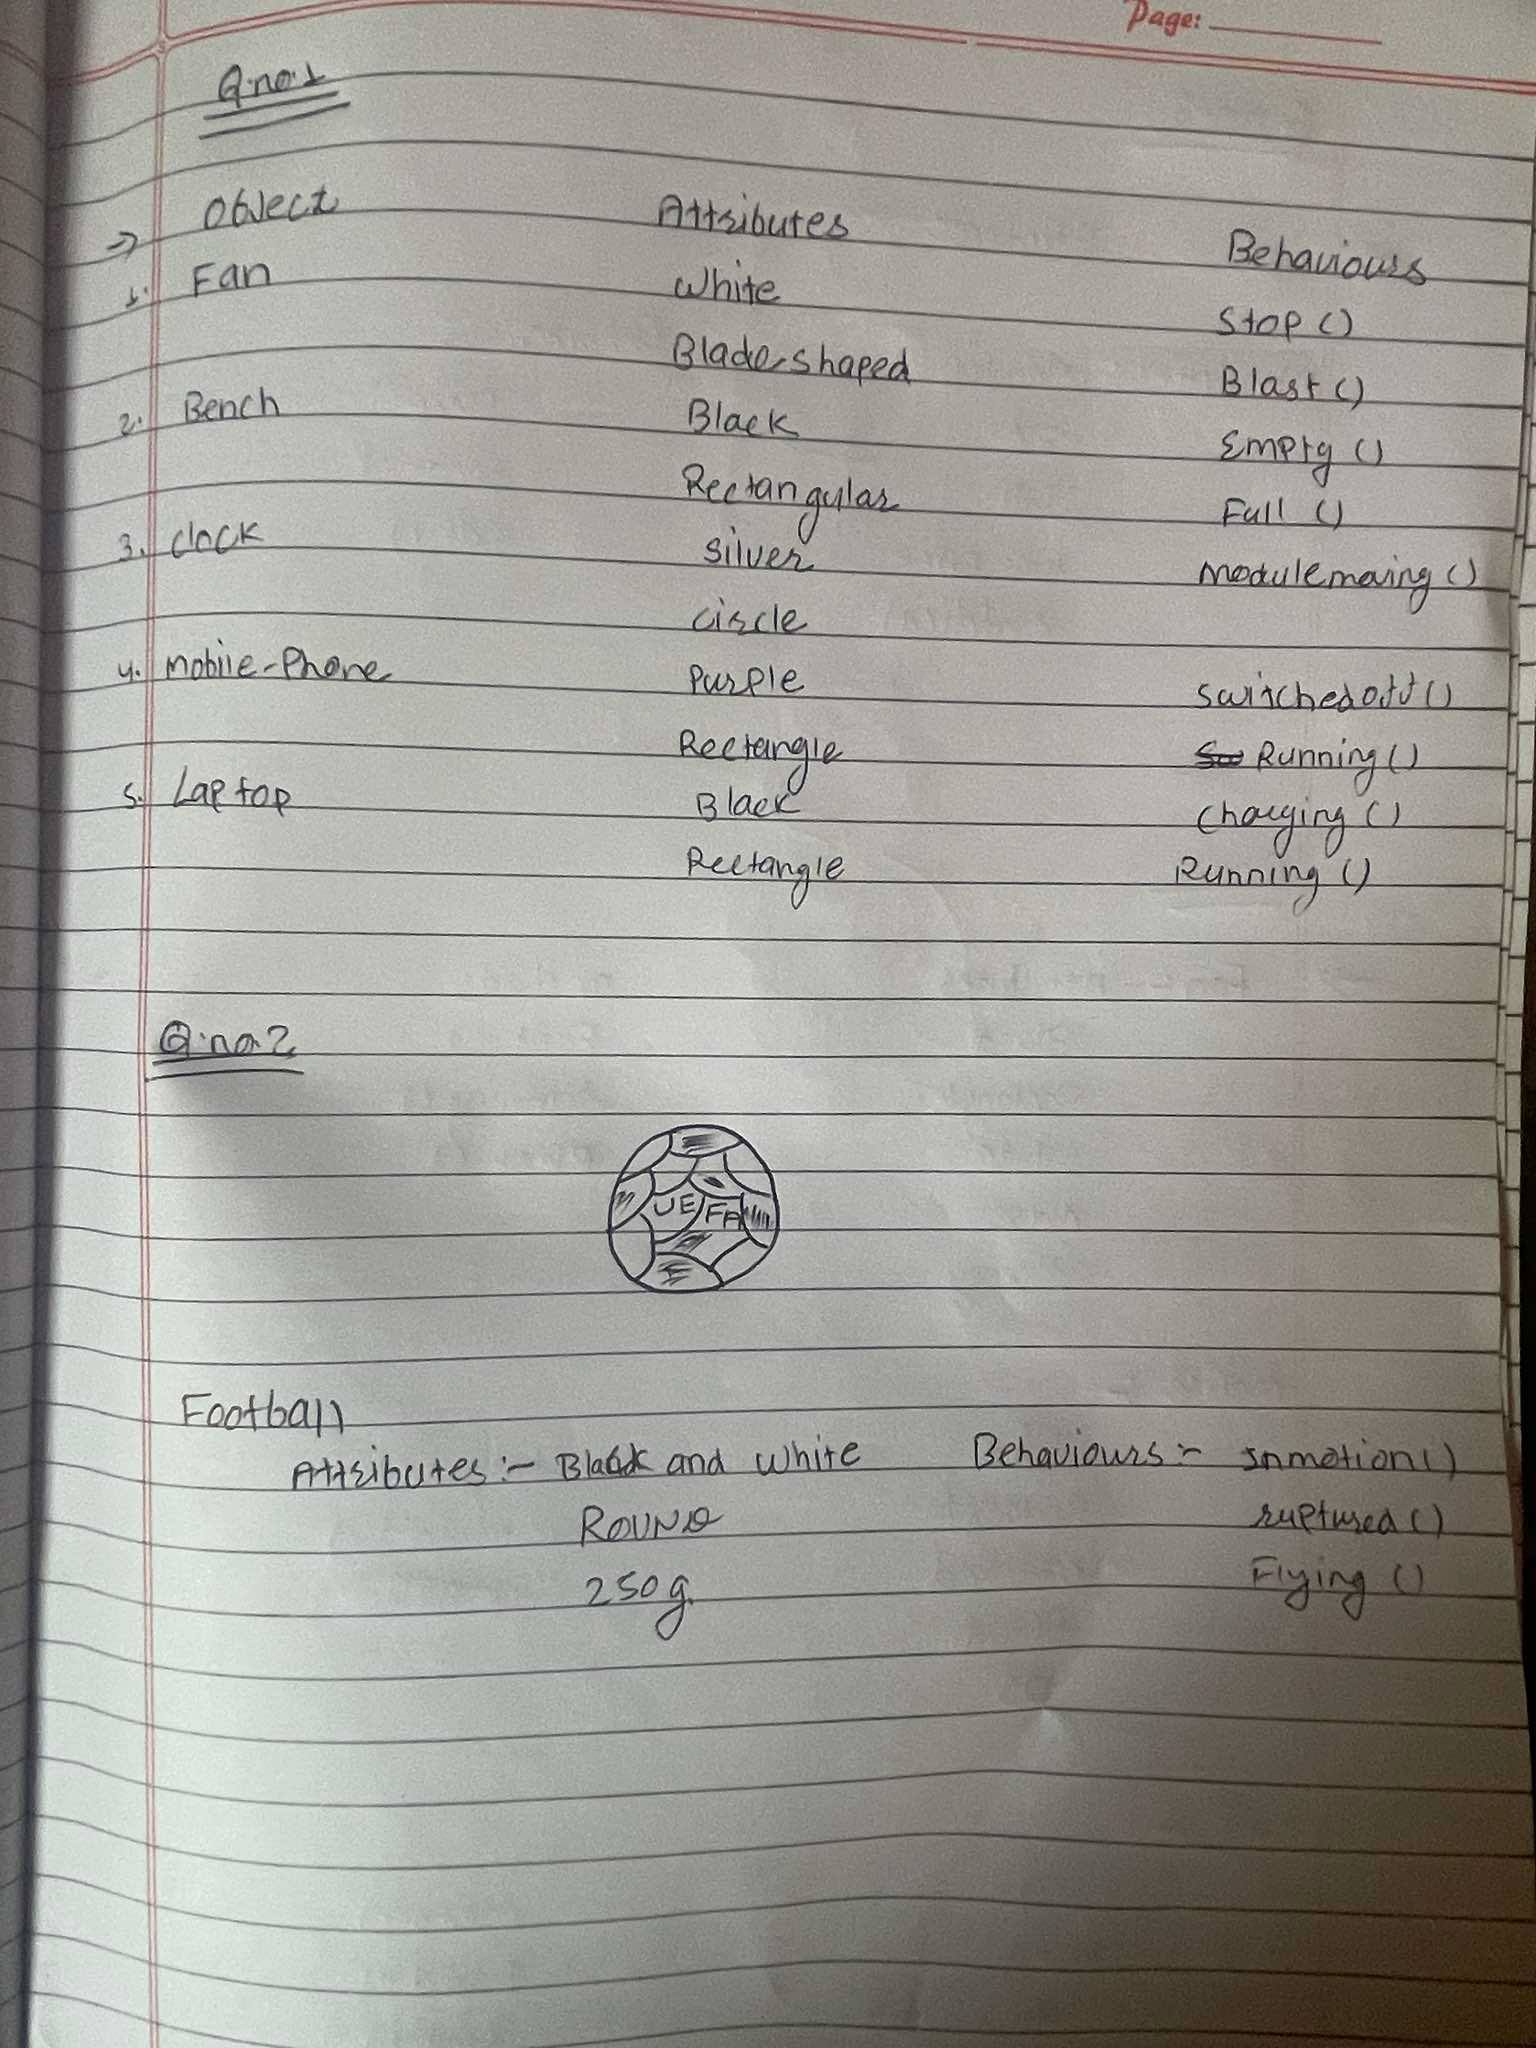 Page:
Q.no.1
=> Object Attributes Behaviours
1. Fan White Stop ()
Blade shaped Blast ()
2. Bench Black Empty ()
Rectangular Full ()
3. Clock Silver Modulemoving ()
Circle
4. Mobile-Phone Purple Switchedoff ()
Rectangle Running ()
5. Laptop Black Charging ()
Rectangle Running ()
Q.no.2
UEFA
Football
Attributes :- Black and White Behaviours :- Inmotion ()
ROUND ruptured ()
250g. Flying ()